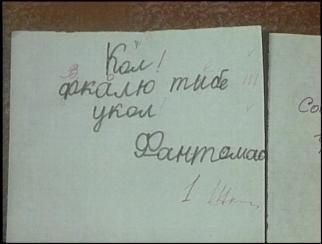 Кол!
фкалю тибе
укол
Фантомас
1
Со